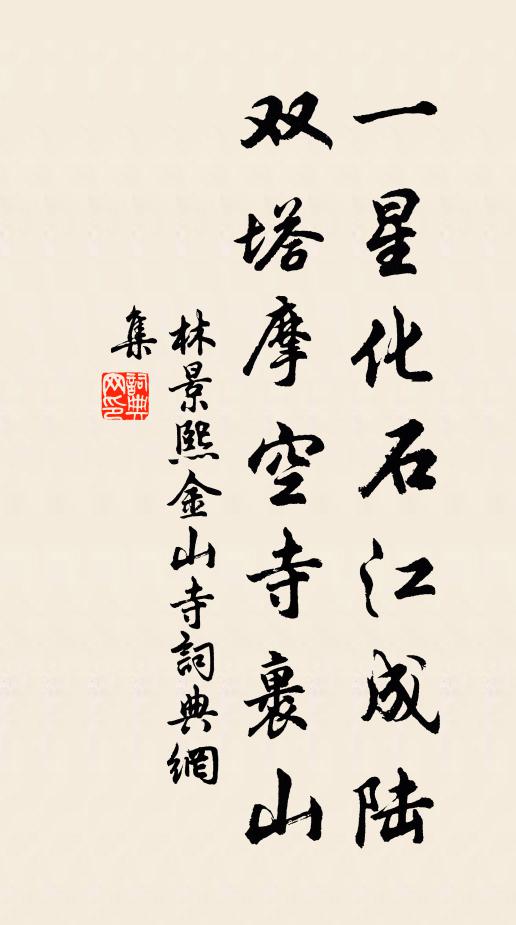 一星化石江成陆
双塔摩空寺裹山
林景熙金山寺詞典網
集
詞典
网印